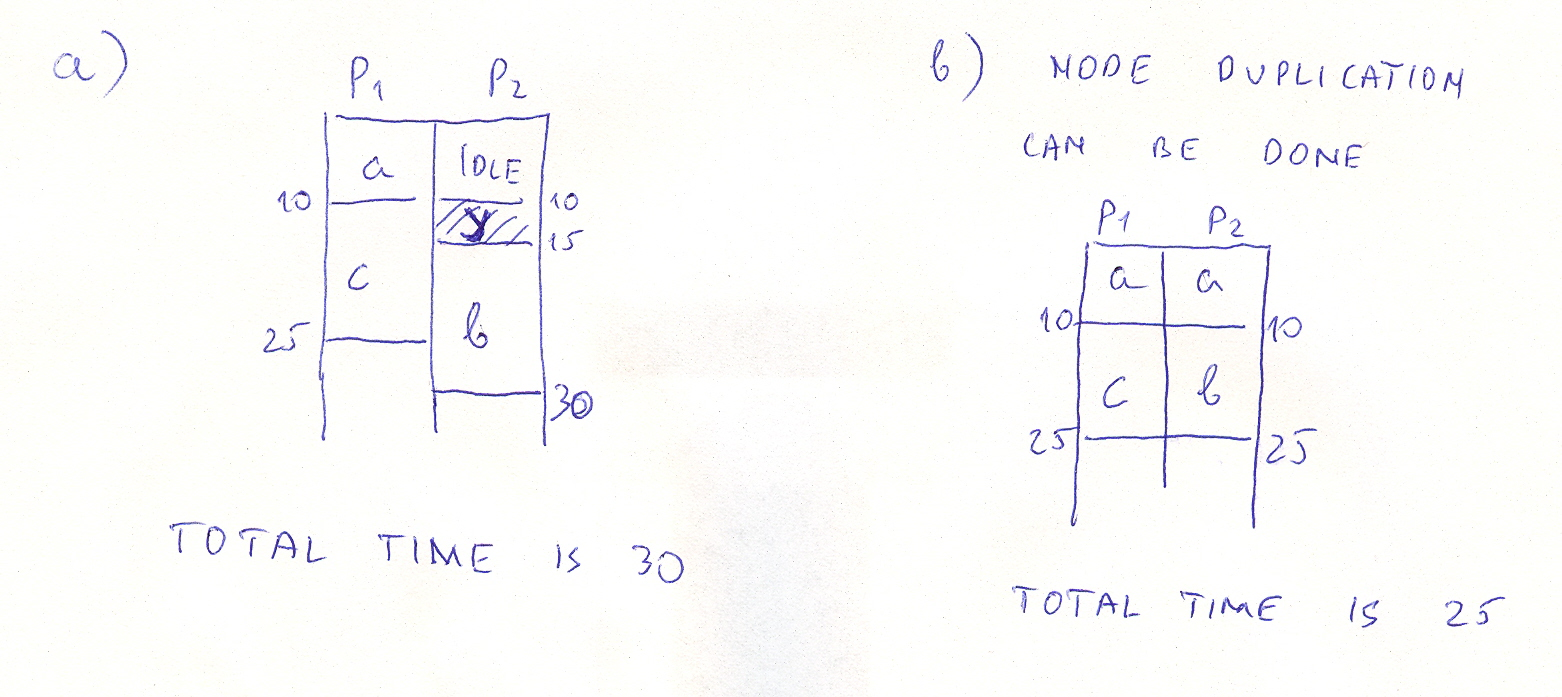 a)
P1 P2
a IDLE
10 10
y
15
c
b
25
30
TOTAL TIME IS 30
b) NODE DUPLICATION
CAN BE DONE
P1 P2
a a
10 10
c b
25 25
TOTAL TIME IS 25